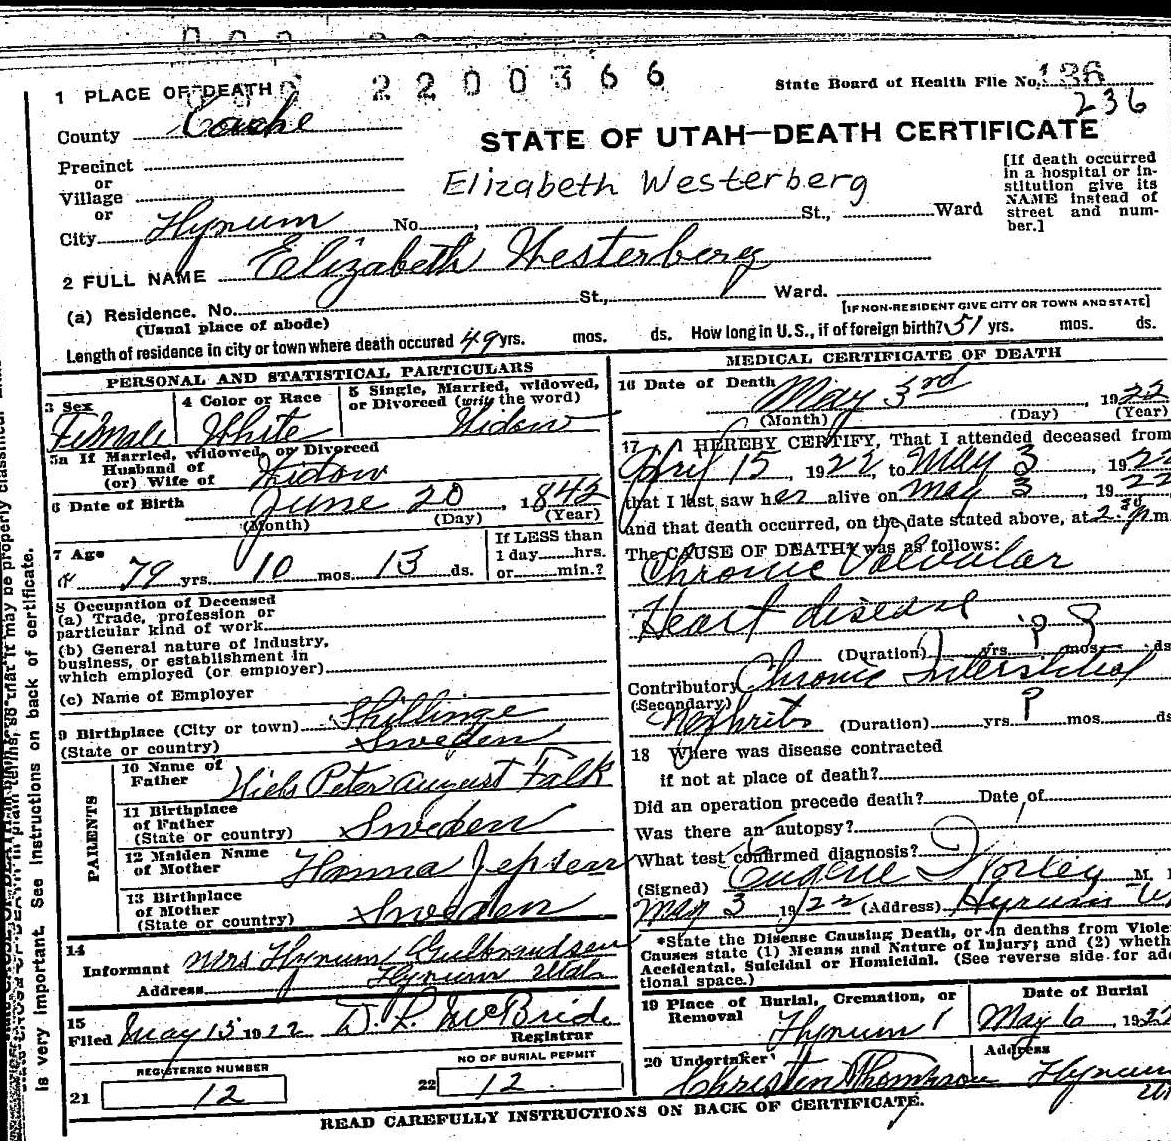 2200366
State Board of Health File No. 136
236
1 PLACE OF DEATH
County Cache
STATE OF UTAH—DEATH CERTIFICATE
Precinct
or
Village
or
City Hyrum No. St., Ward
Elizabeth Westerberg
[If death occurred
in a hospital or in-
stitution give its
NAME instead of
street and num-
ber.]
2 FULL NAME Elizabeth Westerberg
(a) Residence. No. St., Ward.
(Usual place of abode)
[IF NON-RESIDENT GIVE CITY OR TOWN AND STATE]
Length of residence in city or town where death occured 49 yrs. mos. ds. How long in U.S., if of foreign birth? 51 yrs. mos. ds.
PERSONAL AND STATISTICAL PARTICULARS
3 Sex
Female
4 Color or Race
White
5 Single, Married, widowed,
or Divorced (write the word)
Widow
5a If Married, widowed, or Divorced
Husband of
(or) Wife of Widow
6 Date of Birth June 20, 1842
(Month) (Day) (Year)
7 Age
79 yrs. 10 mos. 13 ds.
If LESS than
1 day hrs.
or min.?
8 Occupation of Deceased
(a) Trade, profession or
particular kind of work
(b) General nature of Industry,
business, or establishment in
which employed (or employer)
(c) Name of Employer
9 Birthplace (City or town) Skillinge
(State or country) Sweden
PARENTS
10 Name of
Father Niels Peter August Falk
11 Birthplace
of Father
(State or country) Sweden
12 Maiden Name
of Mother Hanna Jepsen
13 Birthplace
of Mother
(State or country) Sweden
14
Informant Mrs Hyrum Gulbrandsen
Address Hyrum Utah
15
Filed May 15 1922 D. L. McBride
Registrar
REGISTERED NUMBER
21 12
NO OF BURIAL PERMIT
22 12
MEDICAL CERTIFICATE OF DEATH
16 Date of Death May 3rd, 1922
(Month) (Day) (Year)
17 I HEREBY CERTIFY, That I attended deceased from
April 15, 1922, to May 3, 1922
that I last saw her alive on May 3, 1922
and that death occurred, on the date stated above, at 2:30 p.m.
The CAUSE OF DEATH was as follows:
Chronic Valvular
Heart disease
(Duration) yrs. ? mos. ? ds
Contributory Chronic Interstitial
(Secondary)
Nephritis (Duration) yrs. ? mos. ds
18 Where was disease contracted
if not at place of death?
Did an operation precede death? Date of
Was there an autopsy?
What test confirmed diagnosis?
(Signed) Eugene Worley M.
May 3 1922 (Address) Hyrum Ut
*State the Disease Causing Death, or in deaths from Viole
Causes state (1) Means and Nature of Injury; and (2) wheth
Accidental, Suicidal or Homicidal. (See reverse side for add
tional space.)
19 Place of Burial, Cremation, or
Removal Hyrum
Date of Burial
May 6, 1922
20 Undertaker
Christen Thomson
Address
Hyrum
Ut
READ CAREFULLY INSTRUCTIONS ON BACK OF CERTIFICATE.
so that it may be properly classified.
is very important. See instructions on back of certificate.